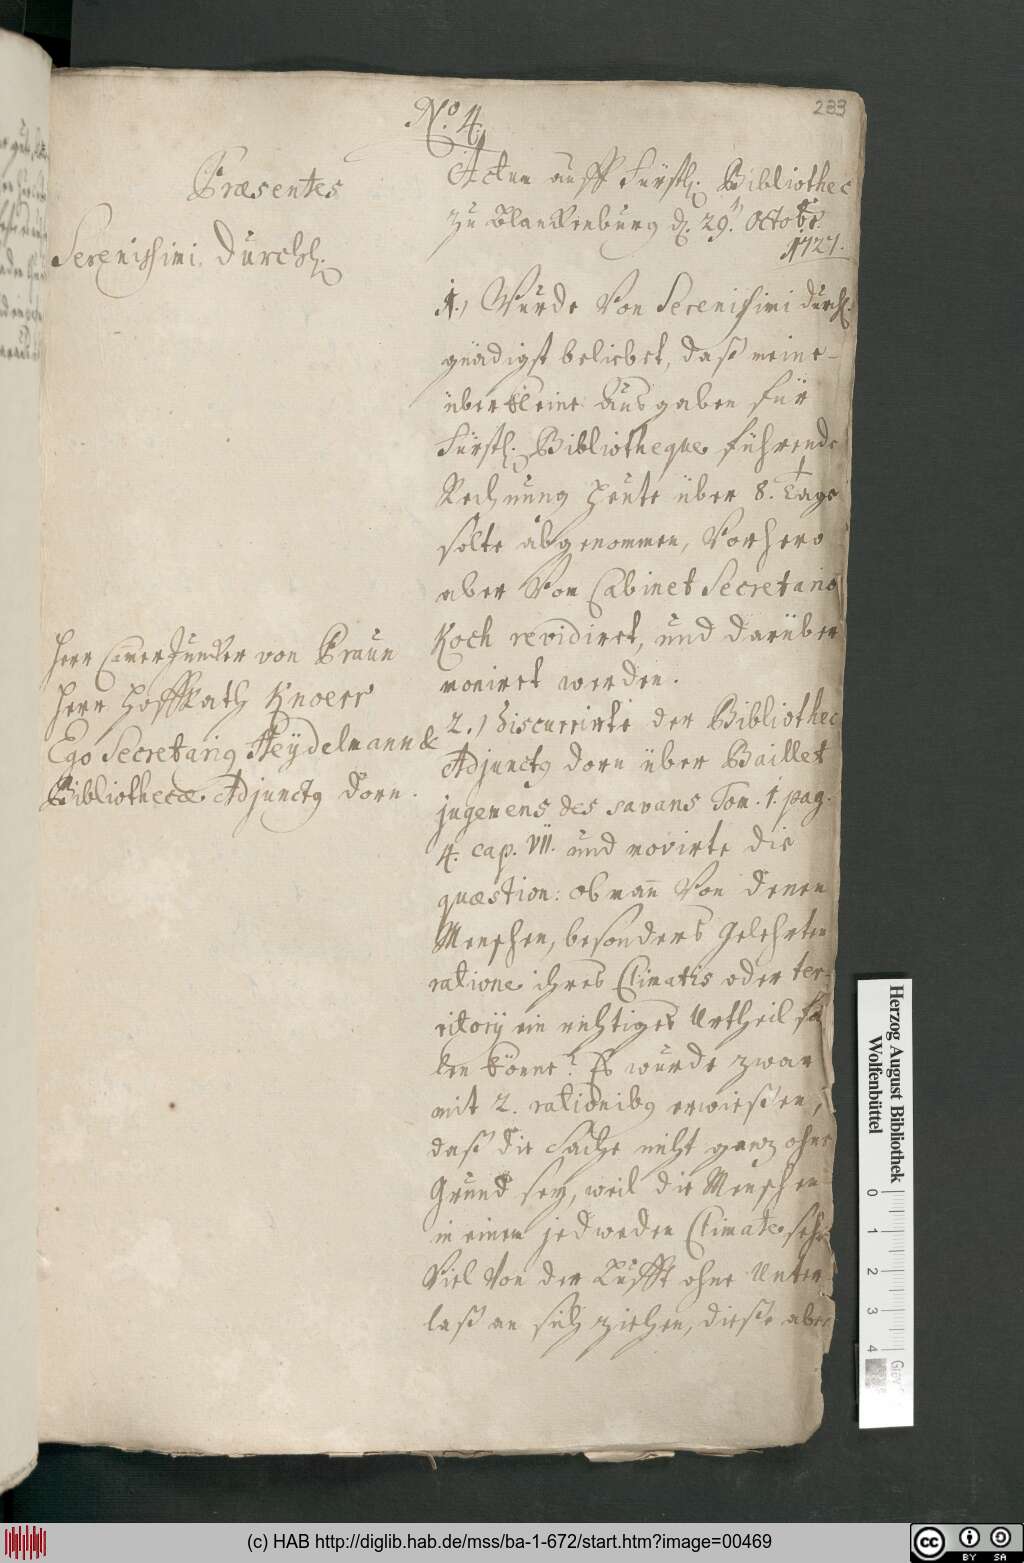 233
No. 4.
Præsentes
Serenissimi Durchl.
Herr CamerJuncker von Praun
Herr HoffRath Knoerr
Ego Secretariq Heÿdelmann &
Bibliothecæ Adjunctq Dorn.
Actum auff Fürstl. Bibliothec
zu Blanckenburg d. 29. Octobr.
1727.
1.) Wurde Von Serenissimi Durchl.
gnädigst beliebet, daß meine
über kleine Ausgaben für
Fürstl. Bibliotheque führende
Rechnung heute über 8. Tage
solte abgenommen, Vorhero
aber Von Cabinet Secretario
Koch revidiret, und darüber
moniret werden.
2.) Discurrirte der Bibliothec
Adjunctq Dorn über Baillet
jugemens des savans Tom. 1. pag.
4. cap. VII. und movirte die
quæstion: ob man Von denen
Menschen, besonders Gelehrten
ratione ihres Climatis oder ter-
ritorij ein richtiges Urtheil fäl
len könne? Es wurde zwar
mit 2. rationibq erwießen,
daß die Sache nicht ganz ohne
Grund seÿ, weil die Menschen
in einem jedweden Climate sehr
Viel Von der Lufft ohne Unter-
laß an sich ziehen, dieße aber
Herzog August Bibliothek
Wolfenbüttel
0 1 2 3 4
(c) HAB http://diglib.hab.de/mss/ba-1-672/start.htm?image=00469
cc
BY SA